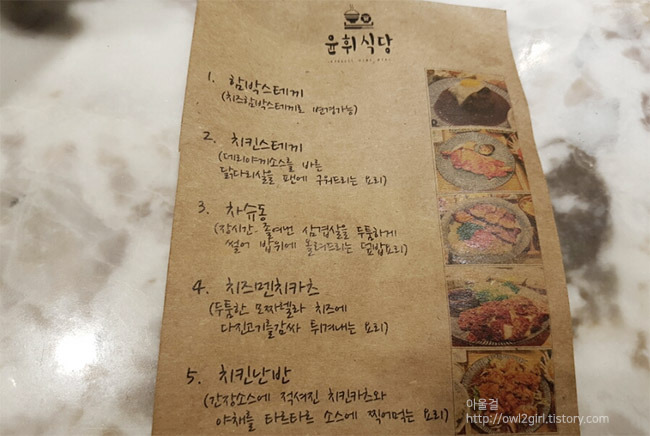 윤휘식당
1. 함박스테끼
(치즈함박스테끼로 변경가능)
2. 치킨스테끼
(데리야끼소스를 바른
닭다리살을 팬에 구워드리는 요리)
3. 차슈동
(장시간 졸여낸 삼겹살을 두툼하게
썰어 밥위에 올려드리는 덮밥요리)
4. 치즈멘치카츠
(두툼한 모짜렐라 치즈에
다진고기를감싸 튀겨내는 요리)
5. 치킨난반
(간장소스에 적셔진 치킨카츠와
야채를 타르타르 소스에 찍어먹는 요리)
아울걸
http://owl2girl.tistory.com